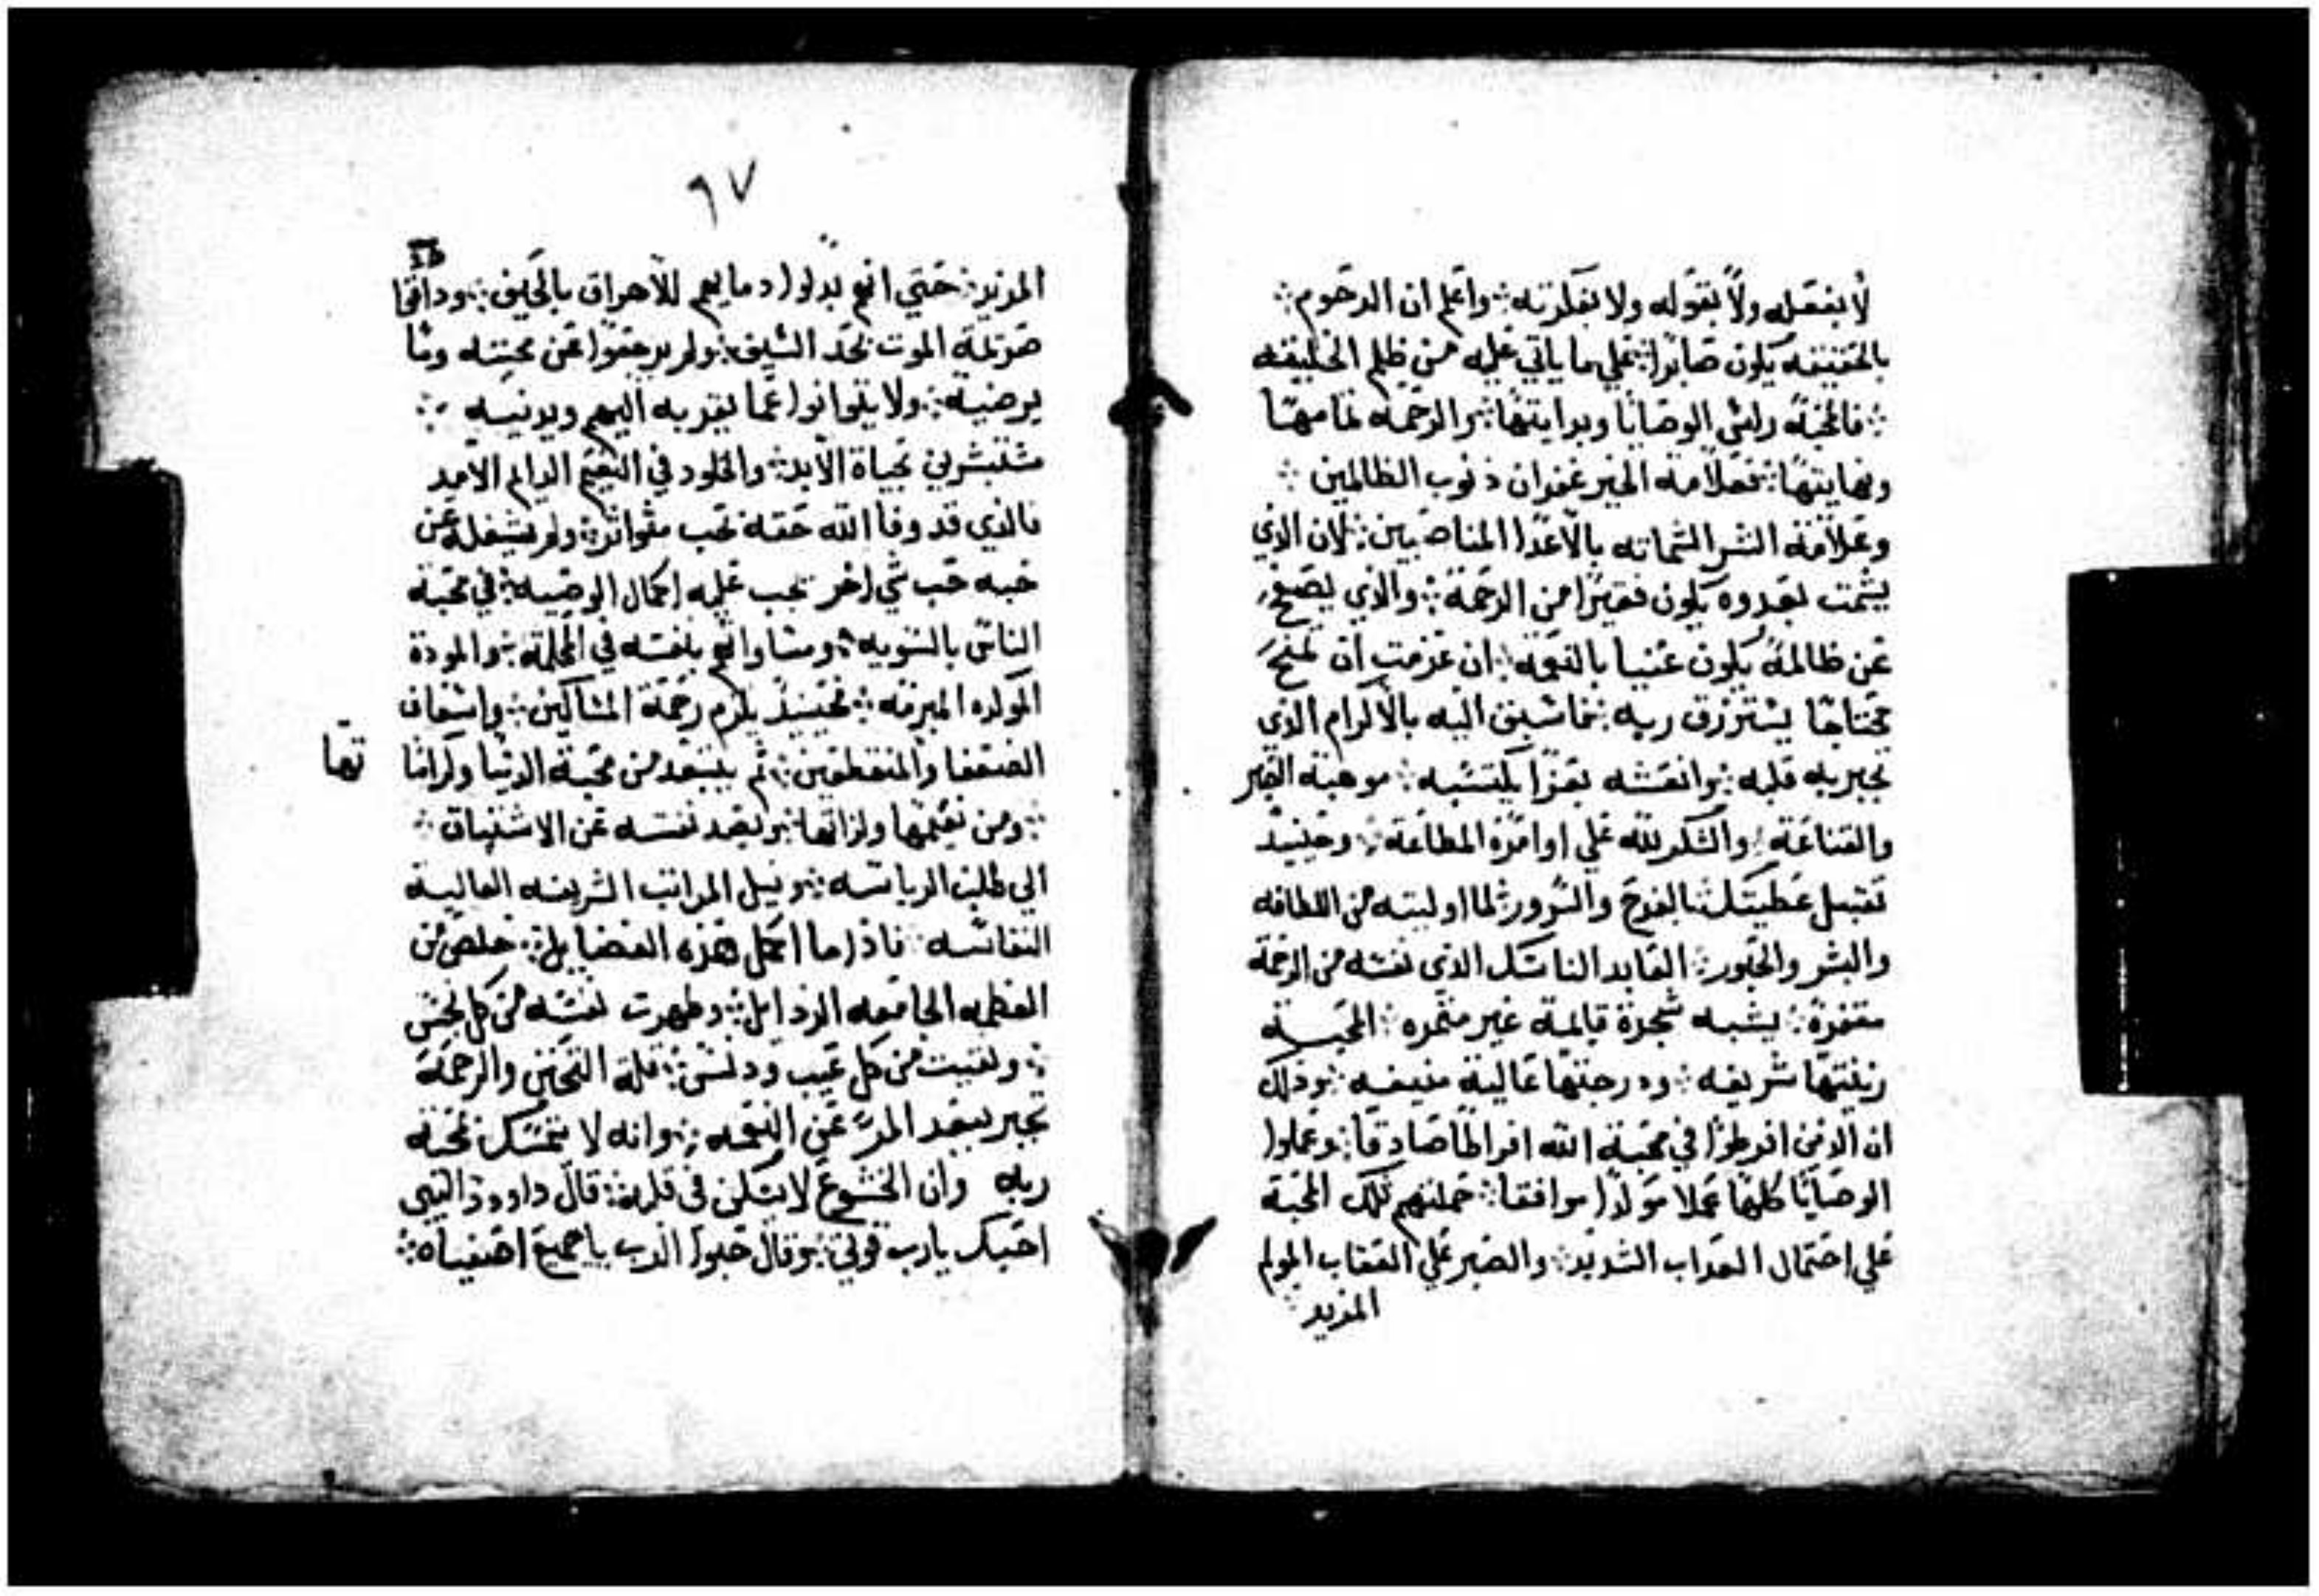 لا يفعله ولا يقوله ولا يفكر به ܀ واعلم ان الرحوم ܀
بالحقيقه يكون صابرا ܀ علي ما ياتي عليه من ظلم الخليقه
܀ فالمحبه راس الوصايا وبدايتها ܀ والرحمه تمامها
ونهايتها ܀ فعلامه الخير غفران ذنوب الظالمين ܀
وعلامة الشر الشماته بالاعدا المناصبين ܀ لان الذي
يشمت بعدوه يكون فقيرا من الرحمة ܀ والذي يصفح
عن ظالمه يكون غنيا بالنعمه ܀ ان عزمت ان تمنح
محتاجا يسترزق ربه ܀ فاسبق اليه بالاكرام الذي
تجبر به قلبه ܀ وانعشه بعزا يكتسبه ܀ موهبة الصبر
والقناعة ܀ والشكر لله علي اوامره المطاعة ܀ وحينيذ
تقبل عطيتك بالفرح والسرور ܀ لما اوليته من اللطافه
والبشر والحبور ܀ العابد الناسك الذي نفسه من الرحمة
مقفرة ܀ يشبه شجرة قايمة غير مثمره ܀ المحبه
زينتها شريفه ܀ ودرجتها عالية منيفه ܀ وذلك
ان الذين افرطوا في محبة الله افراطا صادقا ܀ وعملوا
الوصايا كلها عملا موافقا ܀ حملتهم تلك المحبة
علي احتمال العداب الشديد ܀ والصبر علي العقاب المولم
المزيد
٦٧
المزيد ܀ حتي انهم بدلوا دمايهم للاهراق بالحيف ܀ وداقوا
الموت بحد السيف ܀ ولم يرجعوا عن محبته وما
يرضيه ܀ ولا يتوانوا عما يقربه اليهم ويدنيه ܀
مستبشرين بحياة الابد ܀ والخلود في النعيم الدايم الامد
فالذي قد وفا الله حقه بحب متواتر ܀ ولم يشغله عن
حبه حب شي اخر يجب عليه اكمال الوصيه ܀ في محبة
الناس بالسويه ܀ ومساواتهم بنفسه في ܀ والمودة
܀ فحينيذ يلزم رحمة المساكين ܀ واسعاف
الضعفا والمنقطعين ܀ ثم يبتعد من محبة الدنيا وكراماتها
܀ ومن نعيمها ولذاتها ܀ ويبعد نفسه عن الاشتياق ܀
الي طلب الرياسه ܀ ونيل المراتب الشريفه العالية
النفاسه ܀ فاذا ما اكمل هذه الفضايل ܀ خلص من
العظمه الجامعه الرذايل ܀ وطهرت نفسه من كل نجس
܀ ونقيت من كل عيب ودنس ܀ قلة التحنن والرحمة
تخبر ببعد المرء عن النعمه ܀ وانه لا يتمسك بمحبة
ربه وان الخشوع لا يسكن في قلبه ܀ قال داوود النبي
احبك يارب قوتي ܀ وقال حبوا الرب يا جميع اصفياه ܀